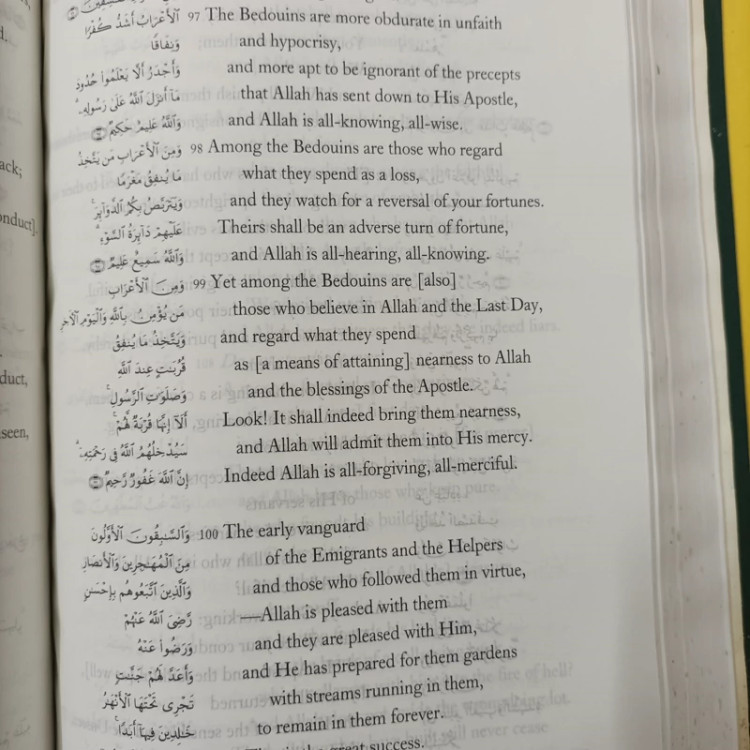 ٱلْأَعْرَابُ أَشَدُّ كُفْرًا 97 The Bedouins are more obdurate in unfaith
وَنِفَاقًا and hypocrisy,
وَأَجْدَرُ أَلَّا يَعْلَمُوا۟ حُدُودَ and more apt to be ignorant of the precepts
مَآ أَنزَلَ ٱللَّهُ عَلَىٰ رَسُولِهِۦ ۗ that Allah has sent down to His Apostle,
وَٱللَّهُ عَلِيمٌ حَكِيمٌ and Allah is all-knowing, all-wise.
وَمِنَ ٱلْأَعْرَابِ مَن يَتَّخِذُ 98 Among the Bedouins are those who regard
مَا يُنفِقُ مَغْرَمًا what they spend as a loss,
وَيَتَرَبَّصُ بِكُمُ ٱلدَّوَآئِرَ ۚ and they watch for a reversal of your fortunes.
عَلَيْهِمْ دَآئِرَةُ ٱلسَّوْءِ ۗ Theirs shall be an adverse turn of fortune,
وَٱللَّهُ سَمِيعٌ عَلِيمٌ and Allah is all-hearing, all-knowing.
وَمِنَ ٱلْأَعْرَابِ 99 Yet among the Bedouins are [also]
مَن يُؤْمِنُ بِٱللَّهِ وَٱلْيَوْمِ ٱلْآخِرِ those who believe in Allah and the Last Day,
وَيَتَّخِذُ مَا يُنفِقُ and regard what they spend
قُرُبَـٰتٍ عِندَ ٱللَّهِ as [a means of attaining] nearness to Allah
وَصَلَوَٰتِ ٱلرَّسُولِ ۚ and the blessings of the Apostle.
أَلَآ إِنَّهَا قُرْبَةٌ لَّهُمْ ۚ Look! It shall indeed bring them nearness,
سَيُدْخِلُهُمُ ٱللَّهُ فِى رَحْمَتِهِۦٓ ۗ and Allah will admit them into His mercy.
إِنَّ ٱللَّهَ غَفُورٌ رَّحِيمٌ Indeed Allah is all-forgiving, all-merciful.
وَٱلسَّـٰبِقُونَ ٱلْأَوَّلُونَ 100 The early vanguard
مِنَ ٱلْمُهَـٰجِرِينَ وَٱلْأَنصَارِ of the Emigrants and the Helpers
وَٱلَّذِينَ ٱتَّبَعُوهُم بِإِحْسَـٰنٍ and those who followed them in virtue,
رَّضِىَ ٱللَّهُ عَنْهُمْ —Allah is pleased with them
وَرَضُوا۟ عَنْهُ and they are pleased with Him,
وَأَعَدَّ لَهُمْ جَنَّـٰتٍ and He has prepared for them gardens
تَجْرِى تَحْتَهَا ٱلْأَنْهَـٰرُ with streams running in them,
خَـٰلِدِينَ فِيهَآ أَبَدًا ۚ to remain in them forever.
great success.